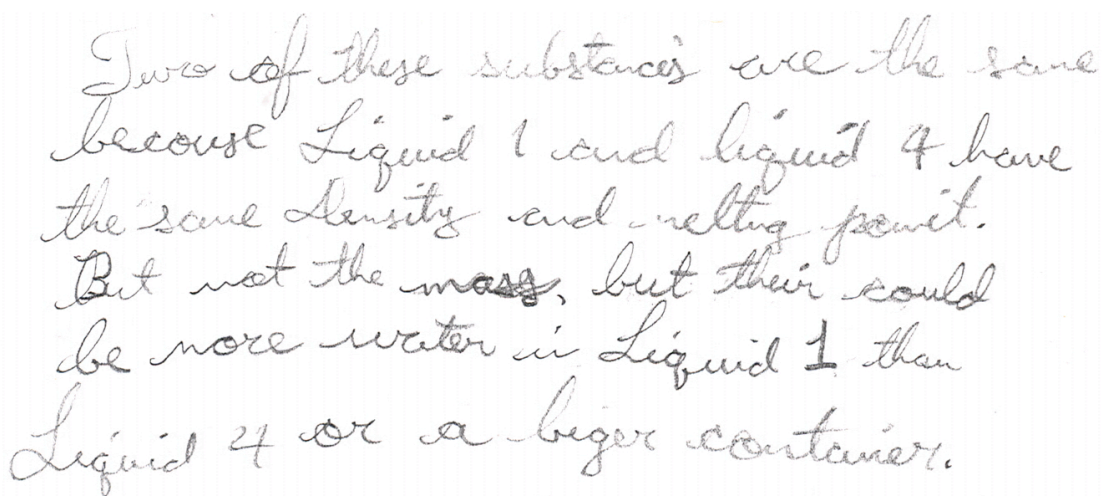 Two of these substances are the same
because Liquid 1 and liquid 4 have
the same Density and melting point.
But not the mass, but their could
be more water in Liquid 1 than
Liquid 4 or a biger container.